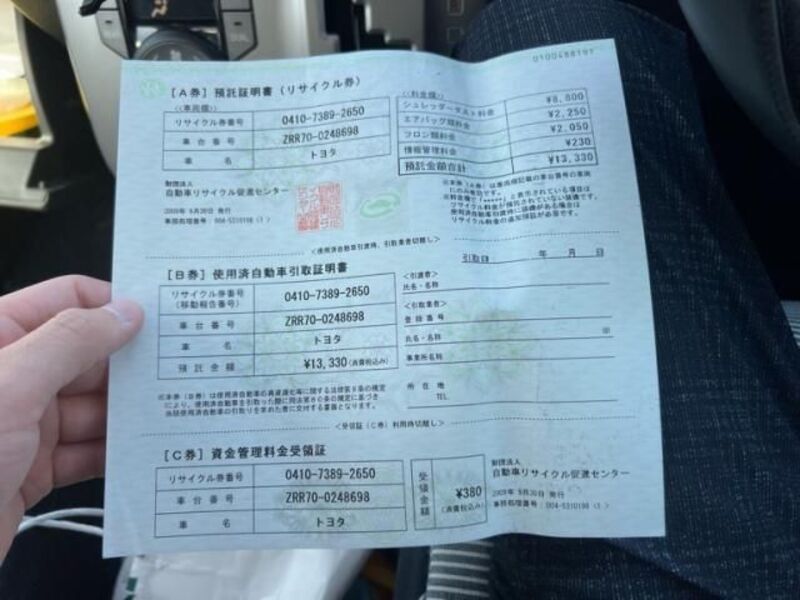 0100488197
[A券] 預託証明書(リサイクル券)
<<車両欄>>
リサイクル券番号 0410-7389-2650
車台番号 ZRR70-0248698
車名 トヨタ
<<料金欄>>
シュレッダーダスト料金 ¥8,800
エアバッグ類料金 ¥2,250
フロン類料金 ¥2,050
情報管理料金 ¥230
預託金額合計 ¥13,330
財団法人
自動車リサイクル促進センター
2009年 9月20日 発行
事務処理番号: 004-5310198
<使用済自動車引渡時、引取業者切離し>
[B券] 使用済自動車引取証明書
引取日 年 月 日
リサイクル券番号
(移動報告番号) 0410-7389-2650
車台番号 ZRR70-0248698
車名 トヨタ
預託金額 ¥13,330(消費税込み)
<引渡者>
氏名・名称
<引取業者>
登録番号
氏名・名称 印
事業所名称
所在地
TEL
※本券(B券)は使用済自動車の再資源化等に関する法律第9条の規定
により、使用済自動車を引取った際に同法第80条の規定に基づき
当該使用済自動車の引取りを求めた者に交付する書面となります。
<受領証(C券)利用時切離し>
[C券] 資金管理料金受領証
リサイクル券番号 0410-7389-2650
車台番号 ZRR70-0248698
車名 トヨタ
受領金額 ¥380
(消費税込み)
財団法人
自動車リサイクル促進センター
2009年 9月20日 発行
事務処理番号: 004-5310198